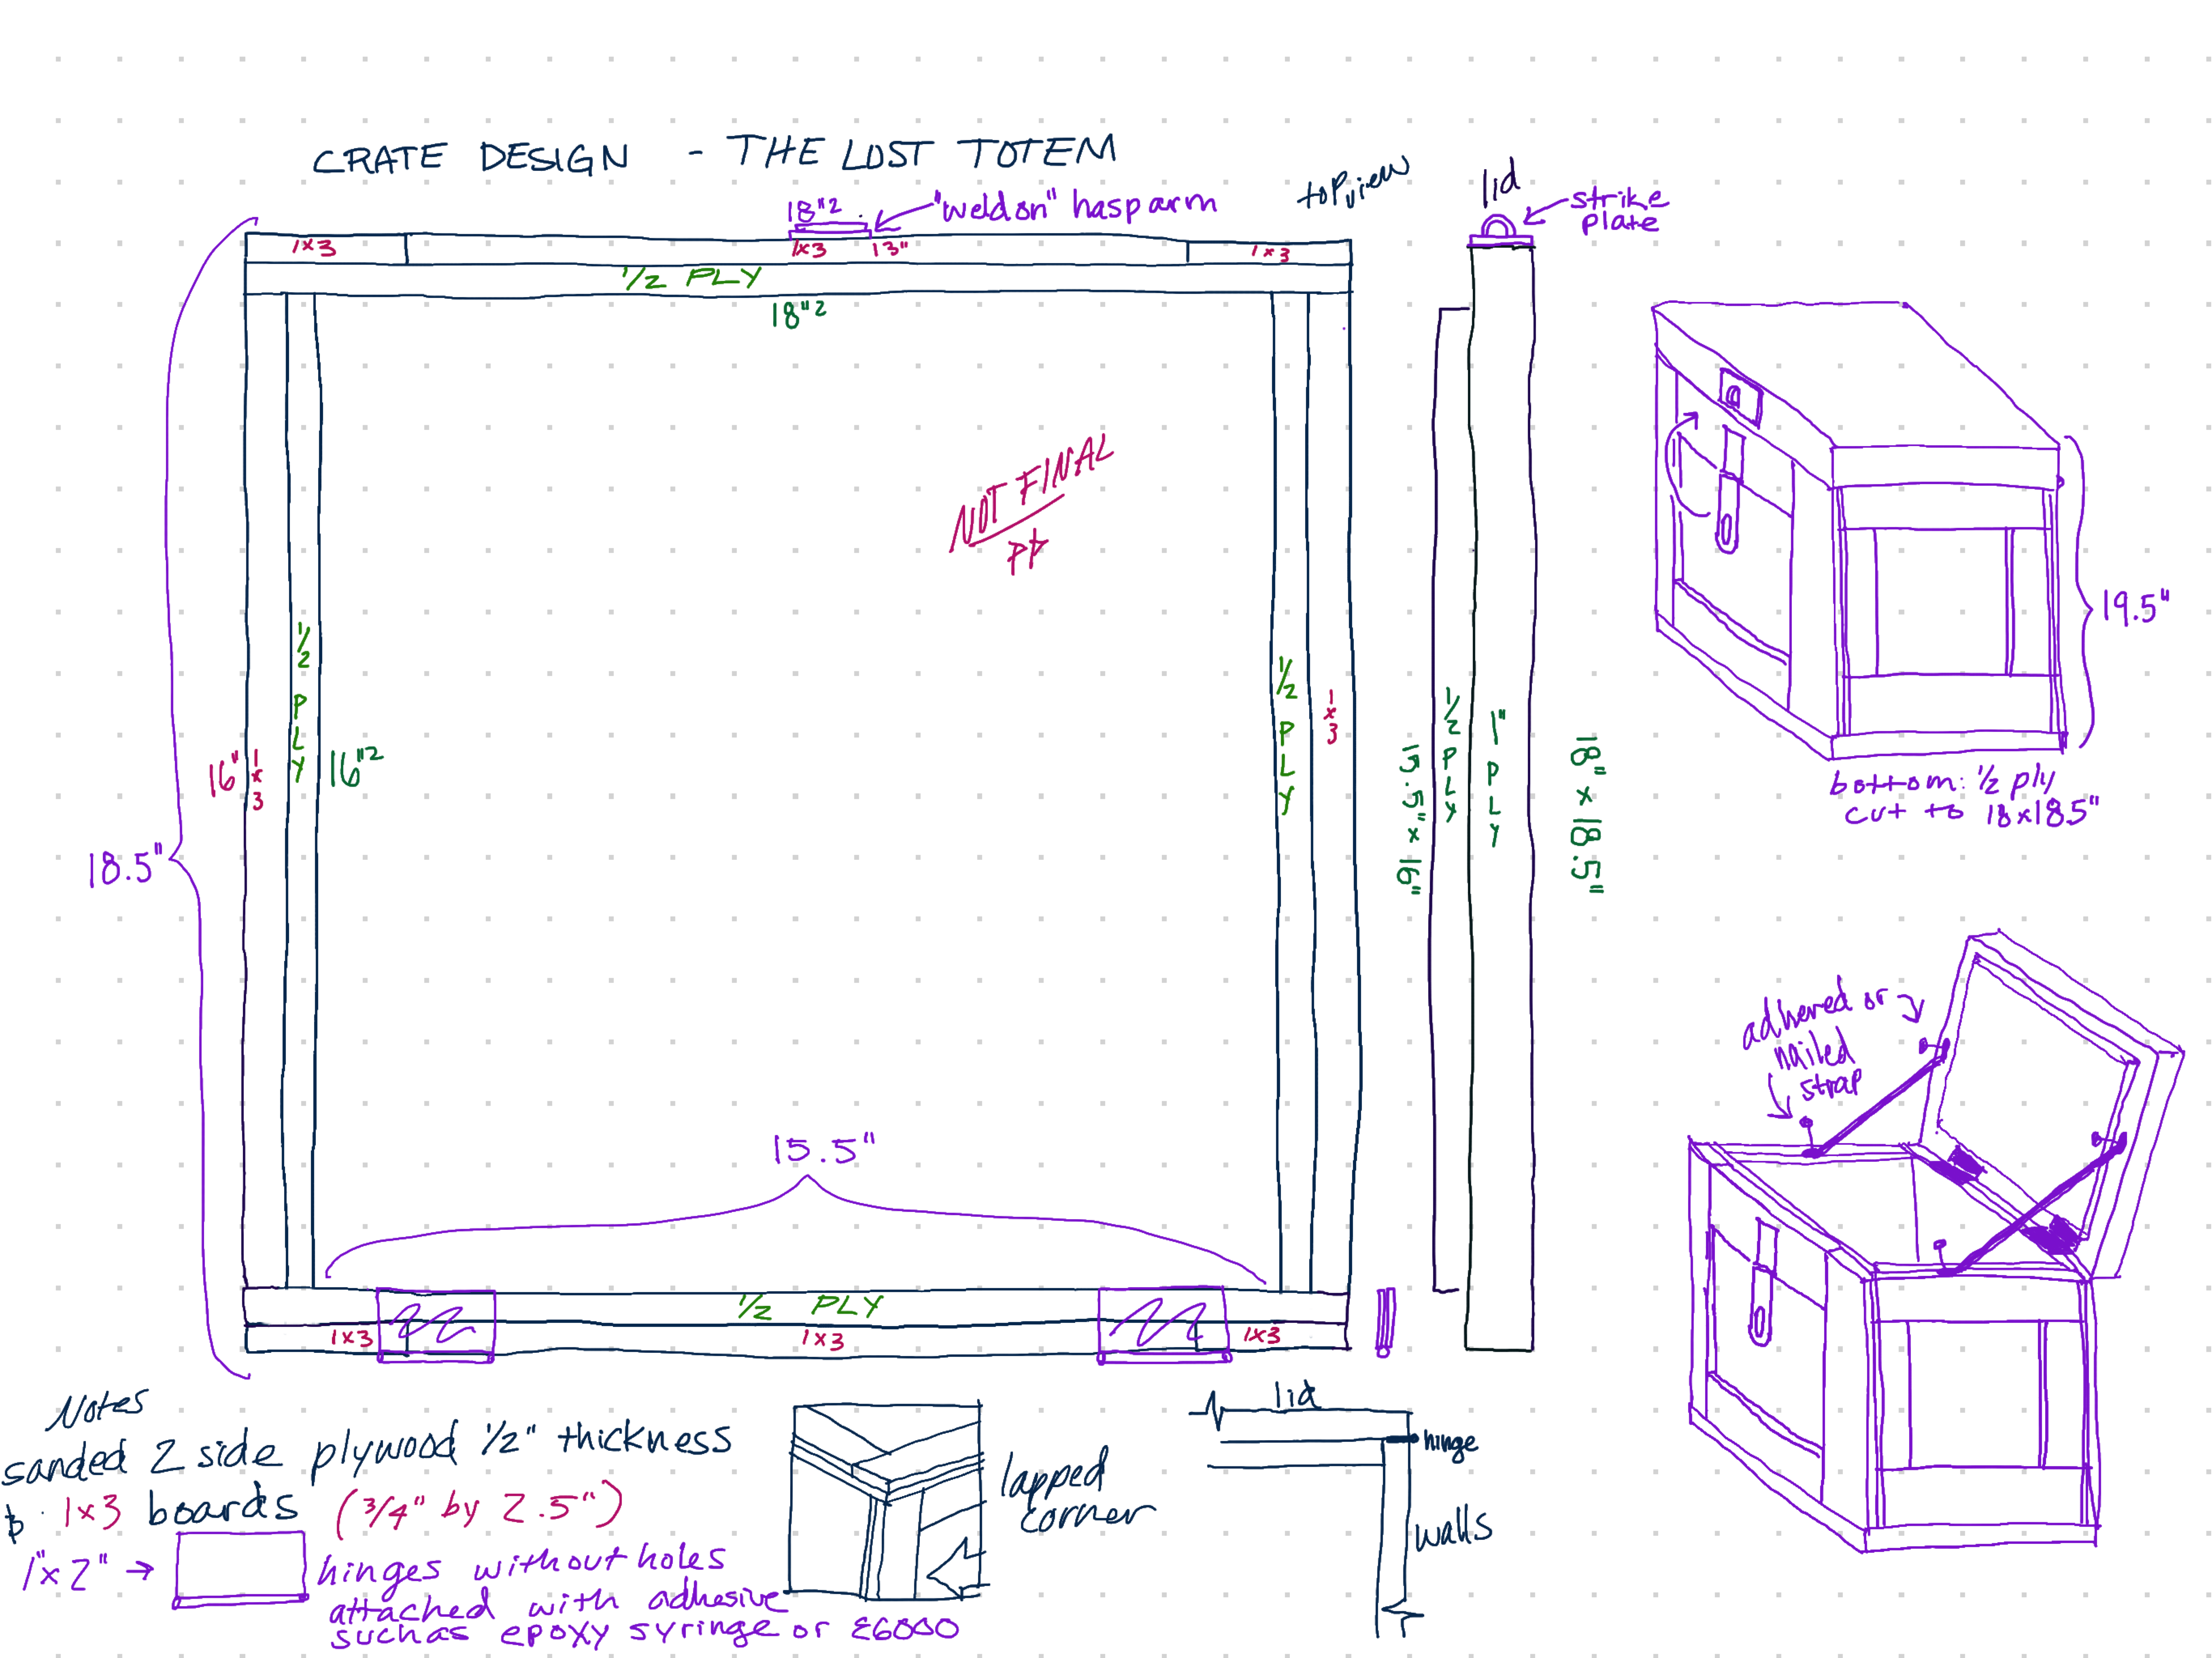 CRATE DESIGN - THE LOST TOTEM
top view
18"2
"weld on" hasp arm
1x3
1x3
13"
1x3
1/2 PLY
18"2
lid
strike
plate
NOT FINAL
1/2 PLY
16"
1x3
16"2
1/2 PLY
1x3
18.5"
15.5"
1/2 PLY
1x3
1x3
1x3
15.5" x 16"
1/2 PLY
1" PLY
18" x 18.5"
19.5"
bottom: 1/2 ply
cut to 18x18.5"
adhered or
nailed
strap
Notes
sanded 2 side plywood 1/2" thickness
1x3 boards (3/4" by 2.5")
1"x 2" →
hinges without holes
attached with adhesive
such as epoxy syringe or E6000
lapped
corner
lid
hinge
walls